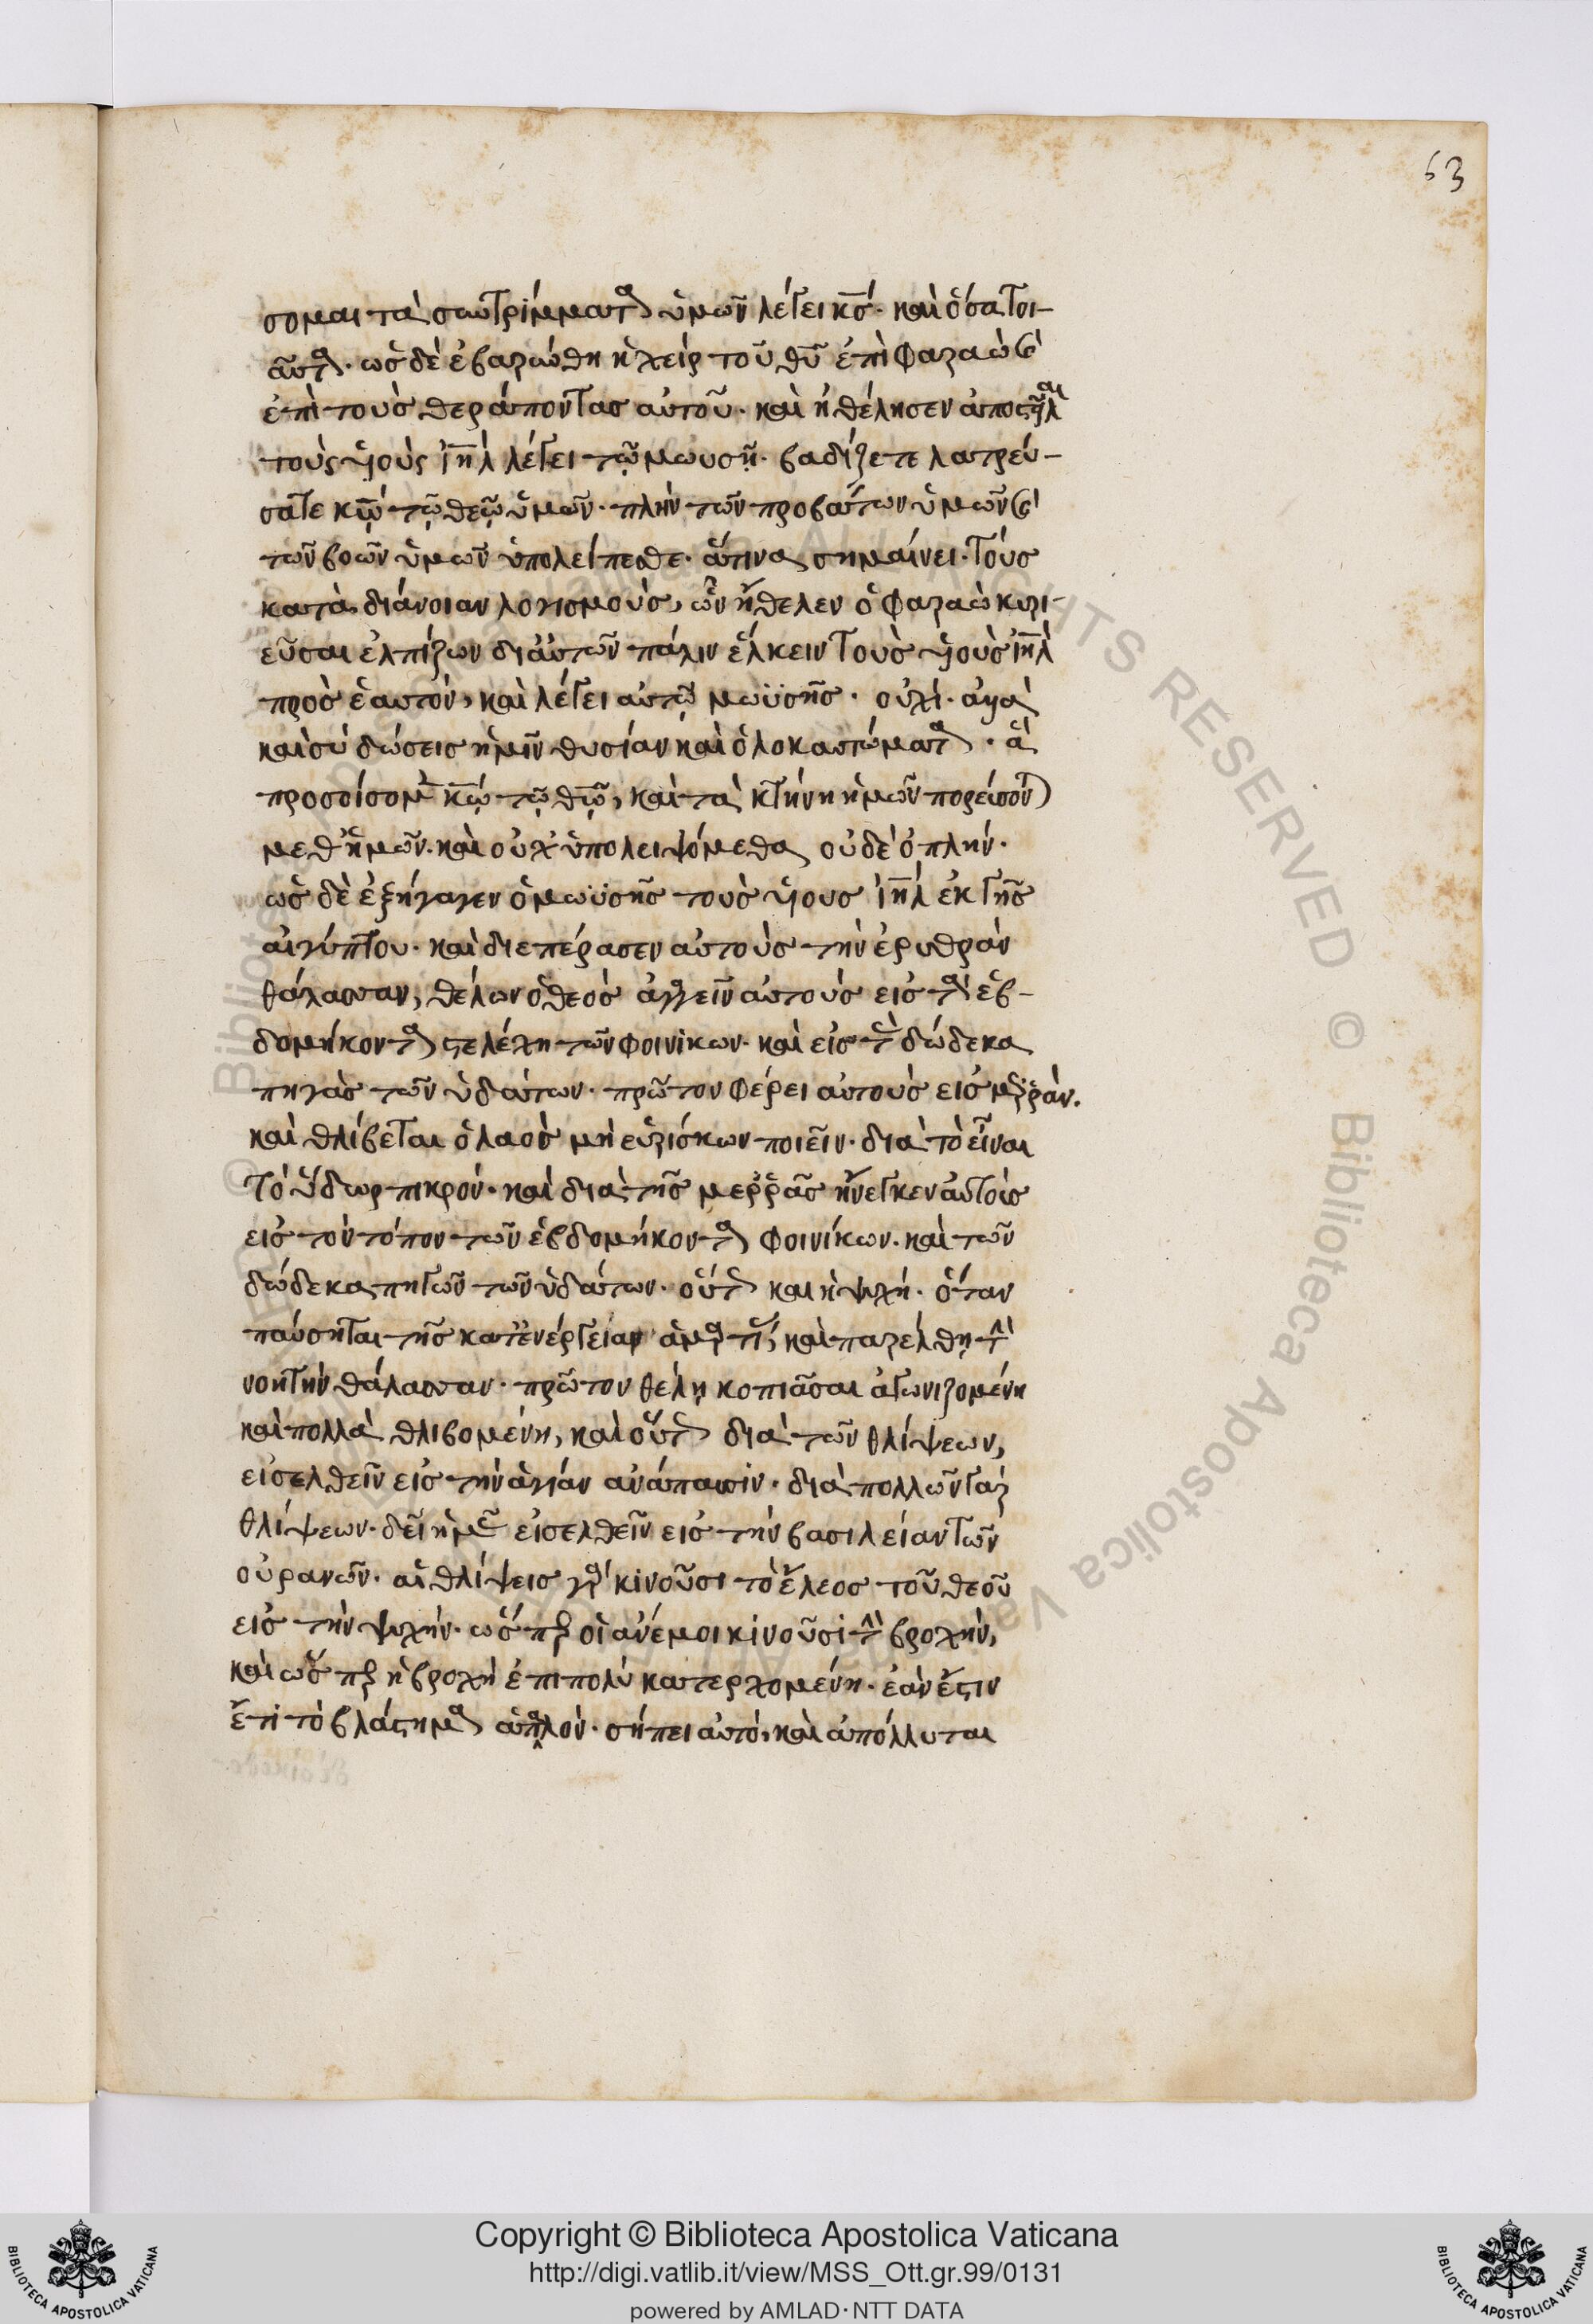 63
σομαι τὰ συντρίμματα ὑμῶν λέγει κς́· καὶ ὅσα τοι-
αῦτα· ὡς δὲ ἐβαρώθη ἡ χεὶρ τοῦ θῦ ἐπὶ φαραὼ ϗ
ἐπὶ τοὺς θεράποντας αὐτοῦ· καὶ ἠθέλησεν
τοὺς υἱοὺς ιη̅λ λέγει τῷ μωυσῇ· βαδίζετε λατρεύ-
σατε κῷ τῷ θεῷ ὑμῶν· πλὴν τῶν προβάτων ὑμῶν ϗ
τῶν βοῶν ὑμῶν ὑπολείπεσθε· ἅτινα σημαίνει· τοὺς
κατὰ διάνοιαν λογισμοὺς, ὧν ἤθελεν ὁ φαραὼ κυρι-
εῦσαι ἐλπίζων δι' αὐτῶν πάλιν ἕλκειν τοὺς υἱοὺς ιη̅λ
πρὸς ἑαυτόν, καὶ λέγει αὐτῷ μωϋσῆς· οὐχί· ἀλλὰ
καὶ σὺ δώσεις ἡμῖν θυσίαν καὶ ὁλοκαυτώματα· ἃ
προσοίσομεν κῷ τῷ θῷ, καὶ τὰ κτήνη ἡμῶν πορεύσονται
μεθ' ἡμῶν· καὶ οὐχ' ὑπολειψόμεθα οὐδὲ ὁπλήν·
ὡς δὲ ἐξήγαγεν ὁ μωϋσῆς τοὺς υἱους ιη̅λ ἐκ γῆς
αἰγύπτου· καὶ διεπέρασεν αὐτοὺς τὴν ἐρυθρὰν
θάλασσαν, θέλων ὁ θεὸς ἀγαγεῖν αὐτοὺς εἰς τὰ ἑβ-
δομήκοντα στελέχη τῶν φοινίκων· καὶ εἰς τὰς δώδεκα
πηγὰς τῶν ὑδάτων· πρῶτον φέρει αὐτοὺς εἰς μερρὰν.
καὶ θλίβεται ὁ λαὸς μὴ εὑρίσκων ποιεῖν· διὰ τὸ εἶναι
τὸ ὕδωρ πικρόν· καὶ διὰ τῆς μερρᾶς ἤνεγκεν αὐτοὺς
εἰς τὸν τόπον τῶν ἑβδομήκοντα φοινίκων· καὶ τῶν
δώδεκα πηγῶν τῶν ὑδάτων· οὕτως καὶ ἡ ψυχή· ὅταν
παύσηται τῆς κατ' ἐνέργειαν ἁμαρτίας, καὶ παρέλθῃ τὴν
νοητὴν θάλασσαν· πρῶτον θέλῃ κοπιᾶσαι ἀγωνιζομένη
καὶ πολλὰ θλιβομένη, καὶ οὕτως διὰ τῶν θλίψεων,
εἰσελθεῖν εἰς τὴν ἁγίαν ἀνάπαυσιν· διὰ πολλῶν γαρ
θλίψεων· δεῖ ἡμᾶς εἰσελθεῖν εἰς τὴν βασιλείαν τῶν
οὐρανῶν· αἱ θλίψεις γὰρ κινοῦσι τὸ ἔλεος τοῦ θεοῦ
εἰς τὴν ψυχήν· ὥσπερ οἱ ἀνέμοι κινοῦσι τὴν βροχήν,
καὶ ὥσπερ ἡ βροχὴ ἐπιπολὺ κατερχομένη· ἐὰν ἔστιν
ἔτι τὸ βλάστημα ἁπαλόν· σήπει αὐτό, καὶ ἀπόλλυται
Copyright © Biblioteca Apostolica Vaticana
http://digi.vatlib.it/view/MSS_Ott.gr.99/0131
powered by AMLAD·NTT DATA